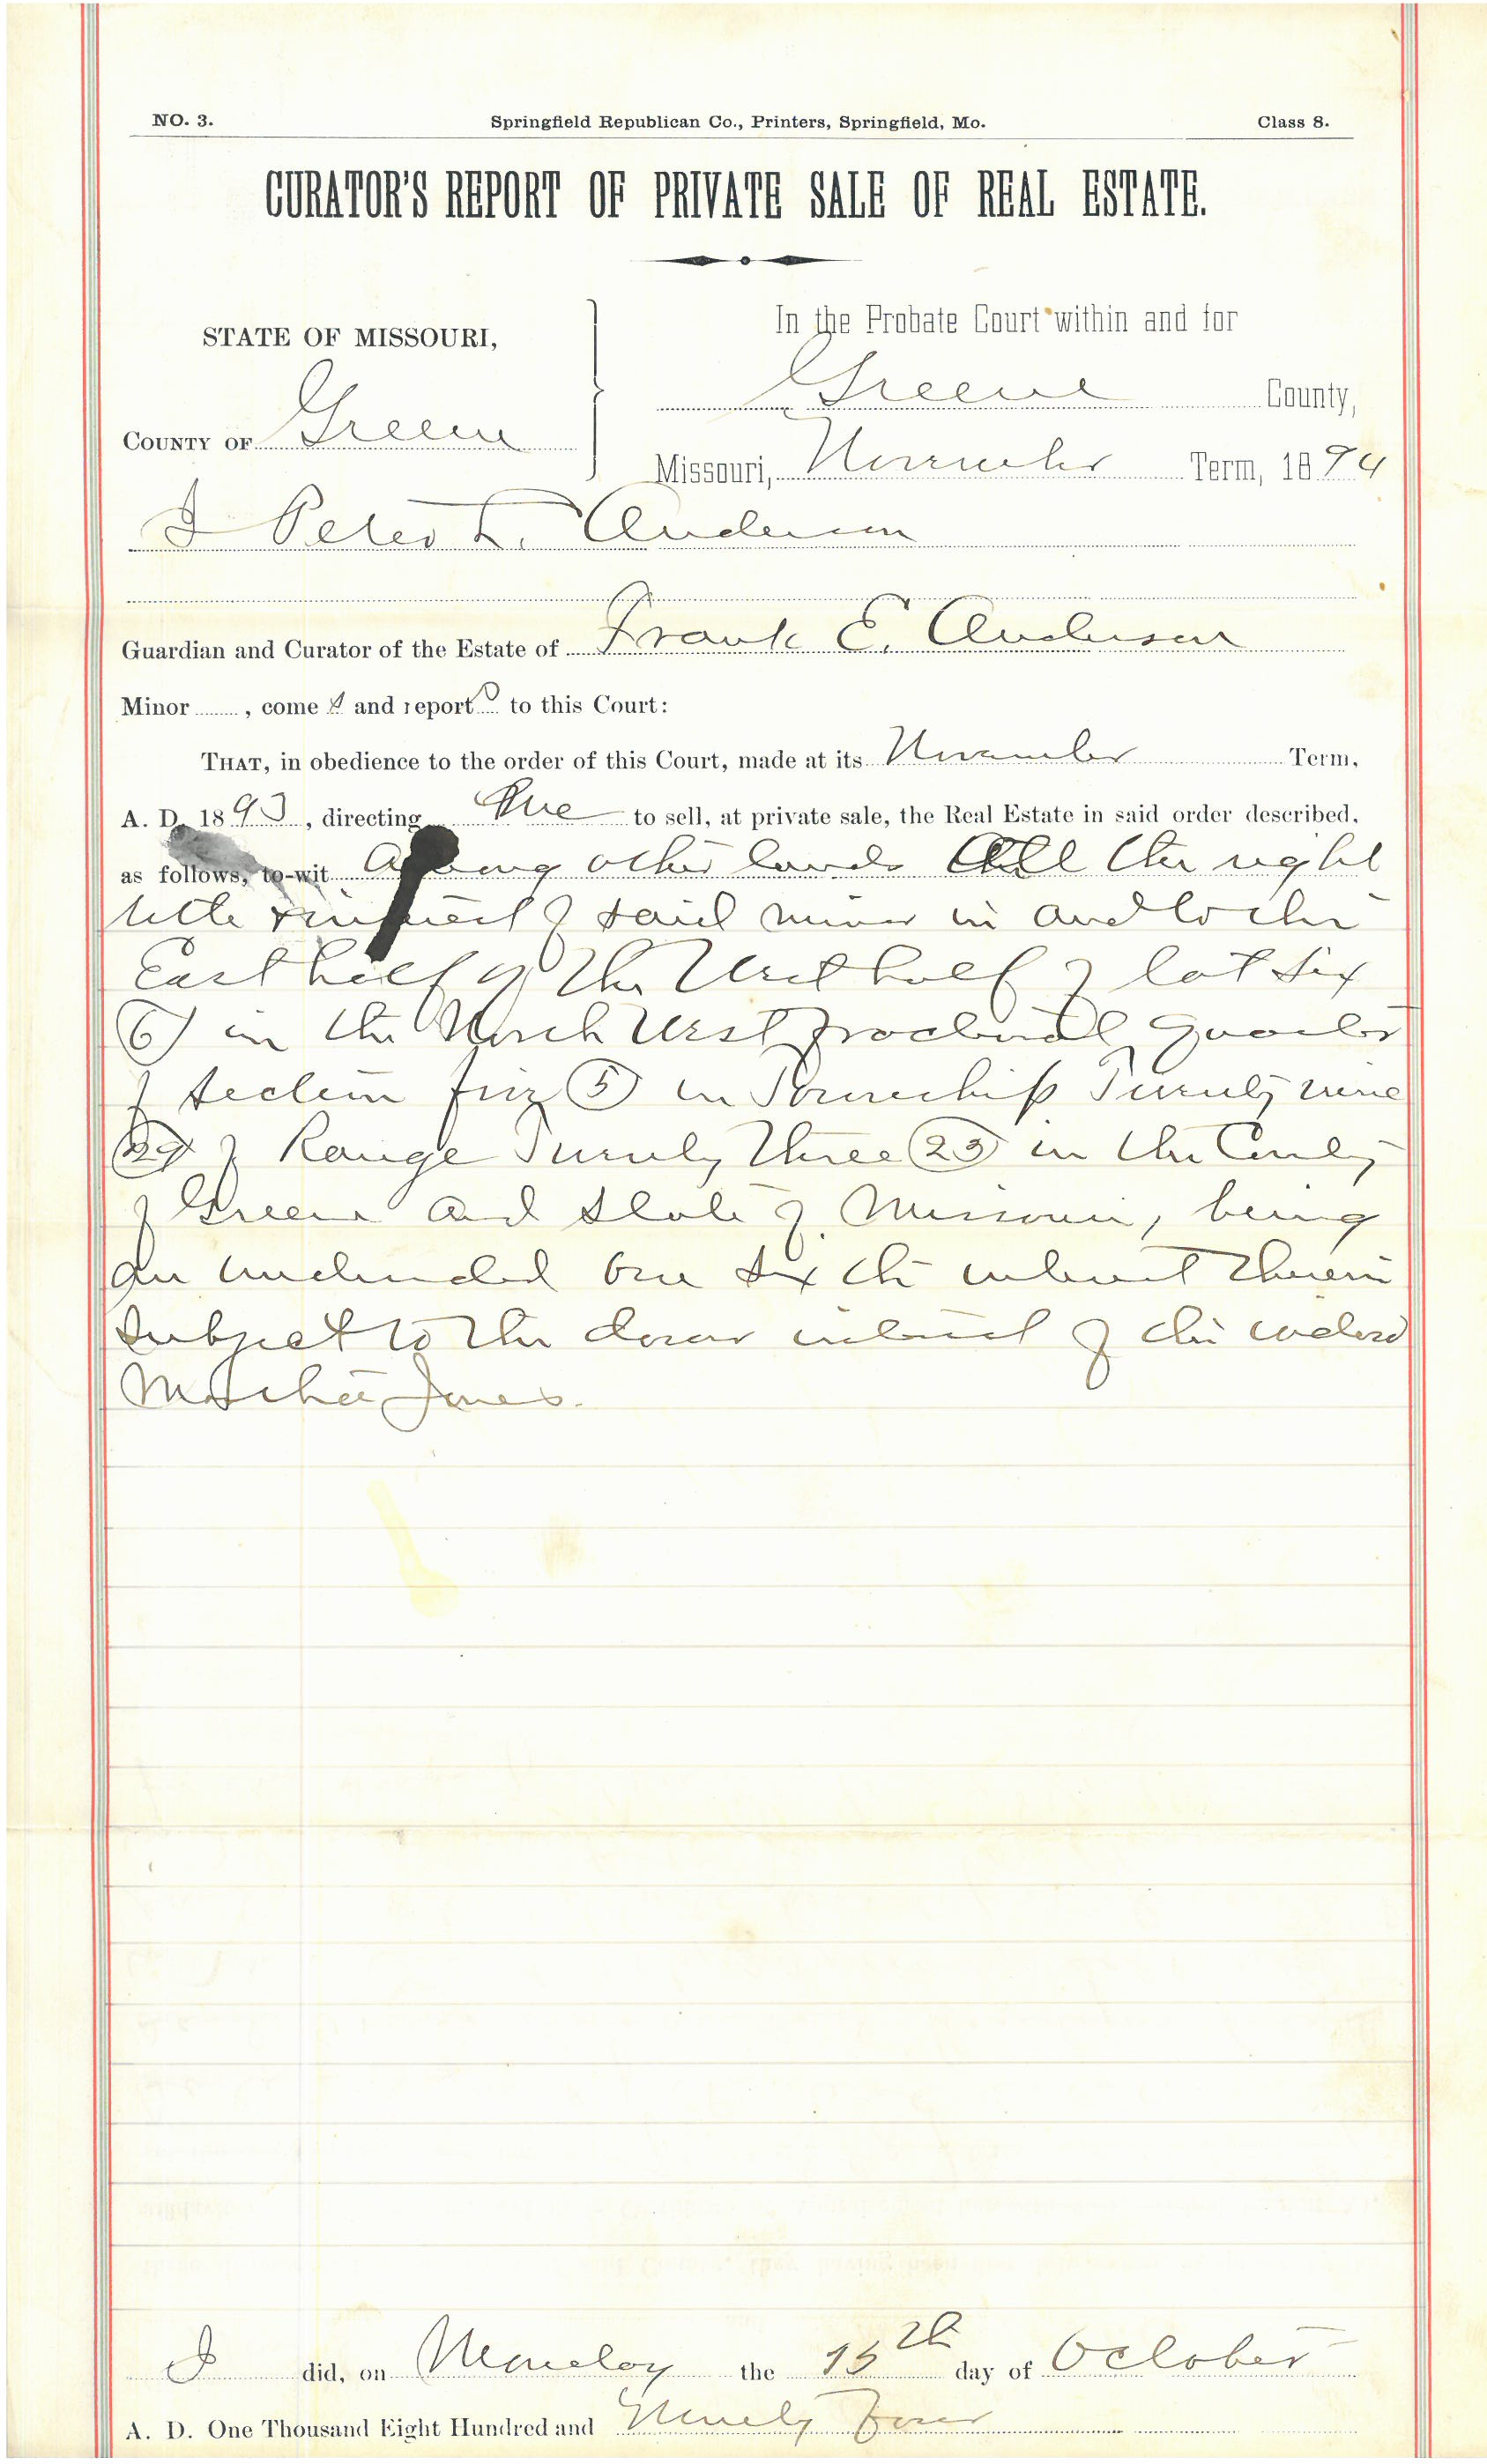 NO. 3. Springfield Republican Co., Printers, Springfield, Mo. Class 8.
CURATOR'S REPORT OF PRIVATE SALE OF REAL ESTATE.
STATE OF MISSOURI,
In the Probate Court within and for
Greene County,
COUNTY OF Greene
Missouri, November Term, 1894
I Peter L. Anderson
Guardian and Curator of the Estate of Frank E. Anderson
Minor , come s and report s to this Court:
THAT, in obedience to the order of this Court, made at its November Term,
A. D. 1893, directing me to sell, at private sale, the Real Estate in said order described,
as follows, to-wit Among other lands All the right
title & interest of said minor in and to the
East half of the West half of lot six
(6) in the North West fractional quarter
of section five (5) in Township Twenty nine
(29) of Range Twenty three (23) in the County
of Greene and State of Missouri, being
an undivided one sixth interest therein
subject to the dower interest of the widow
Martha Jones.
I did, on Monday the 15th day of October
A. D. One Thousand Eight Hundred and Ninety Four